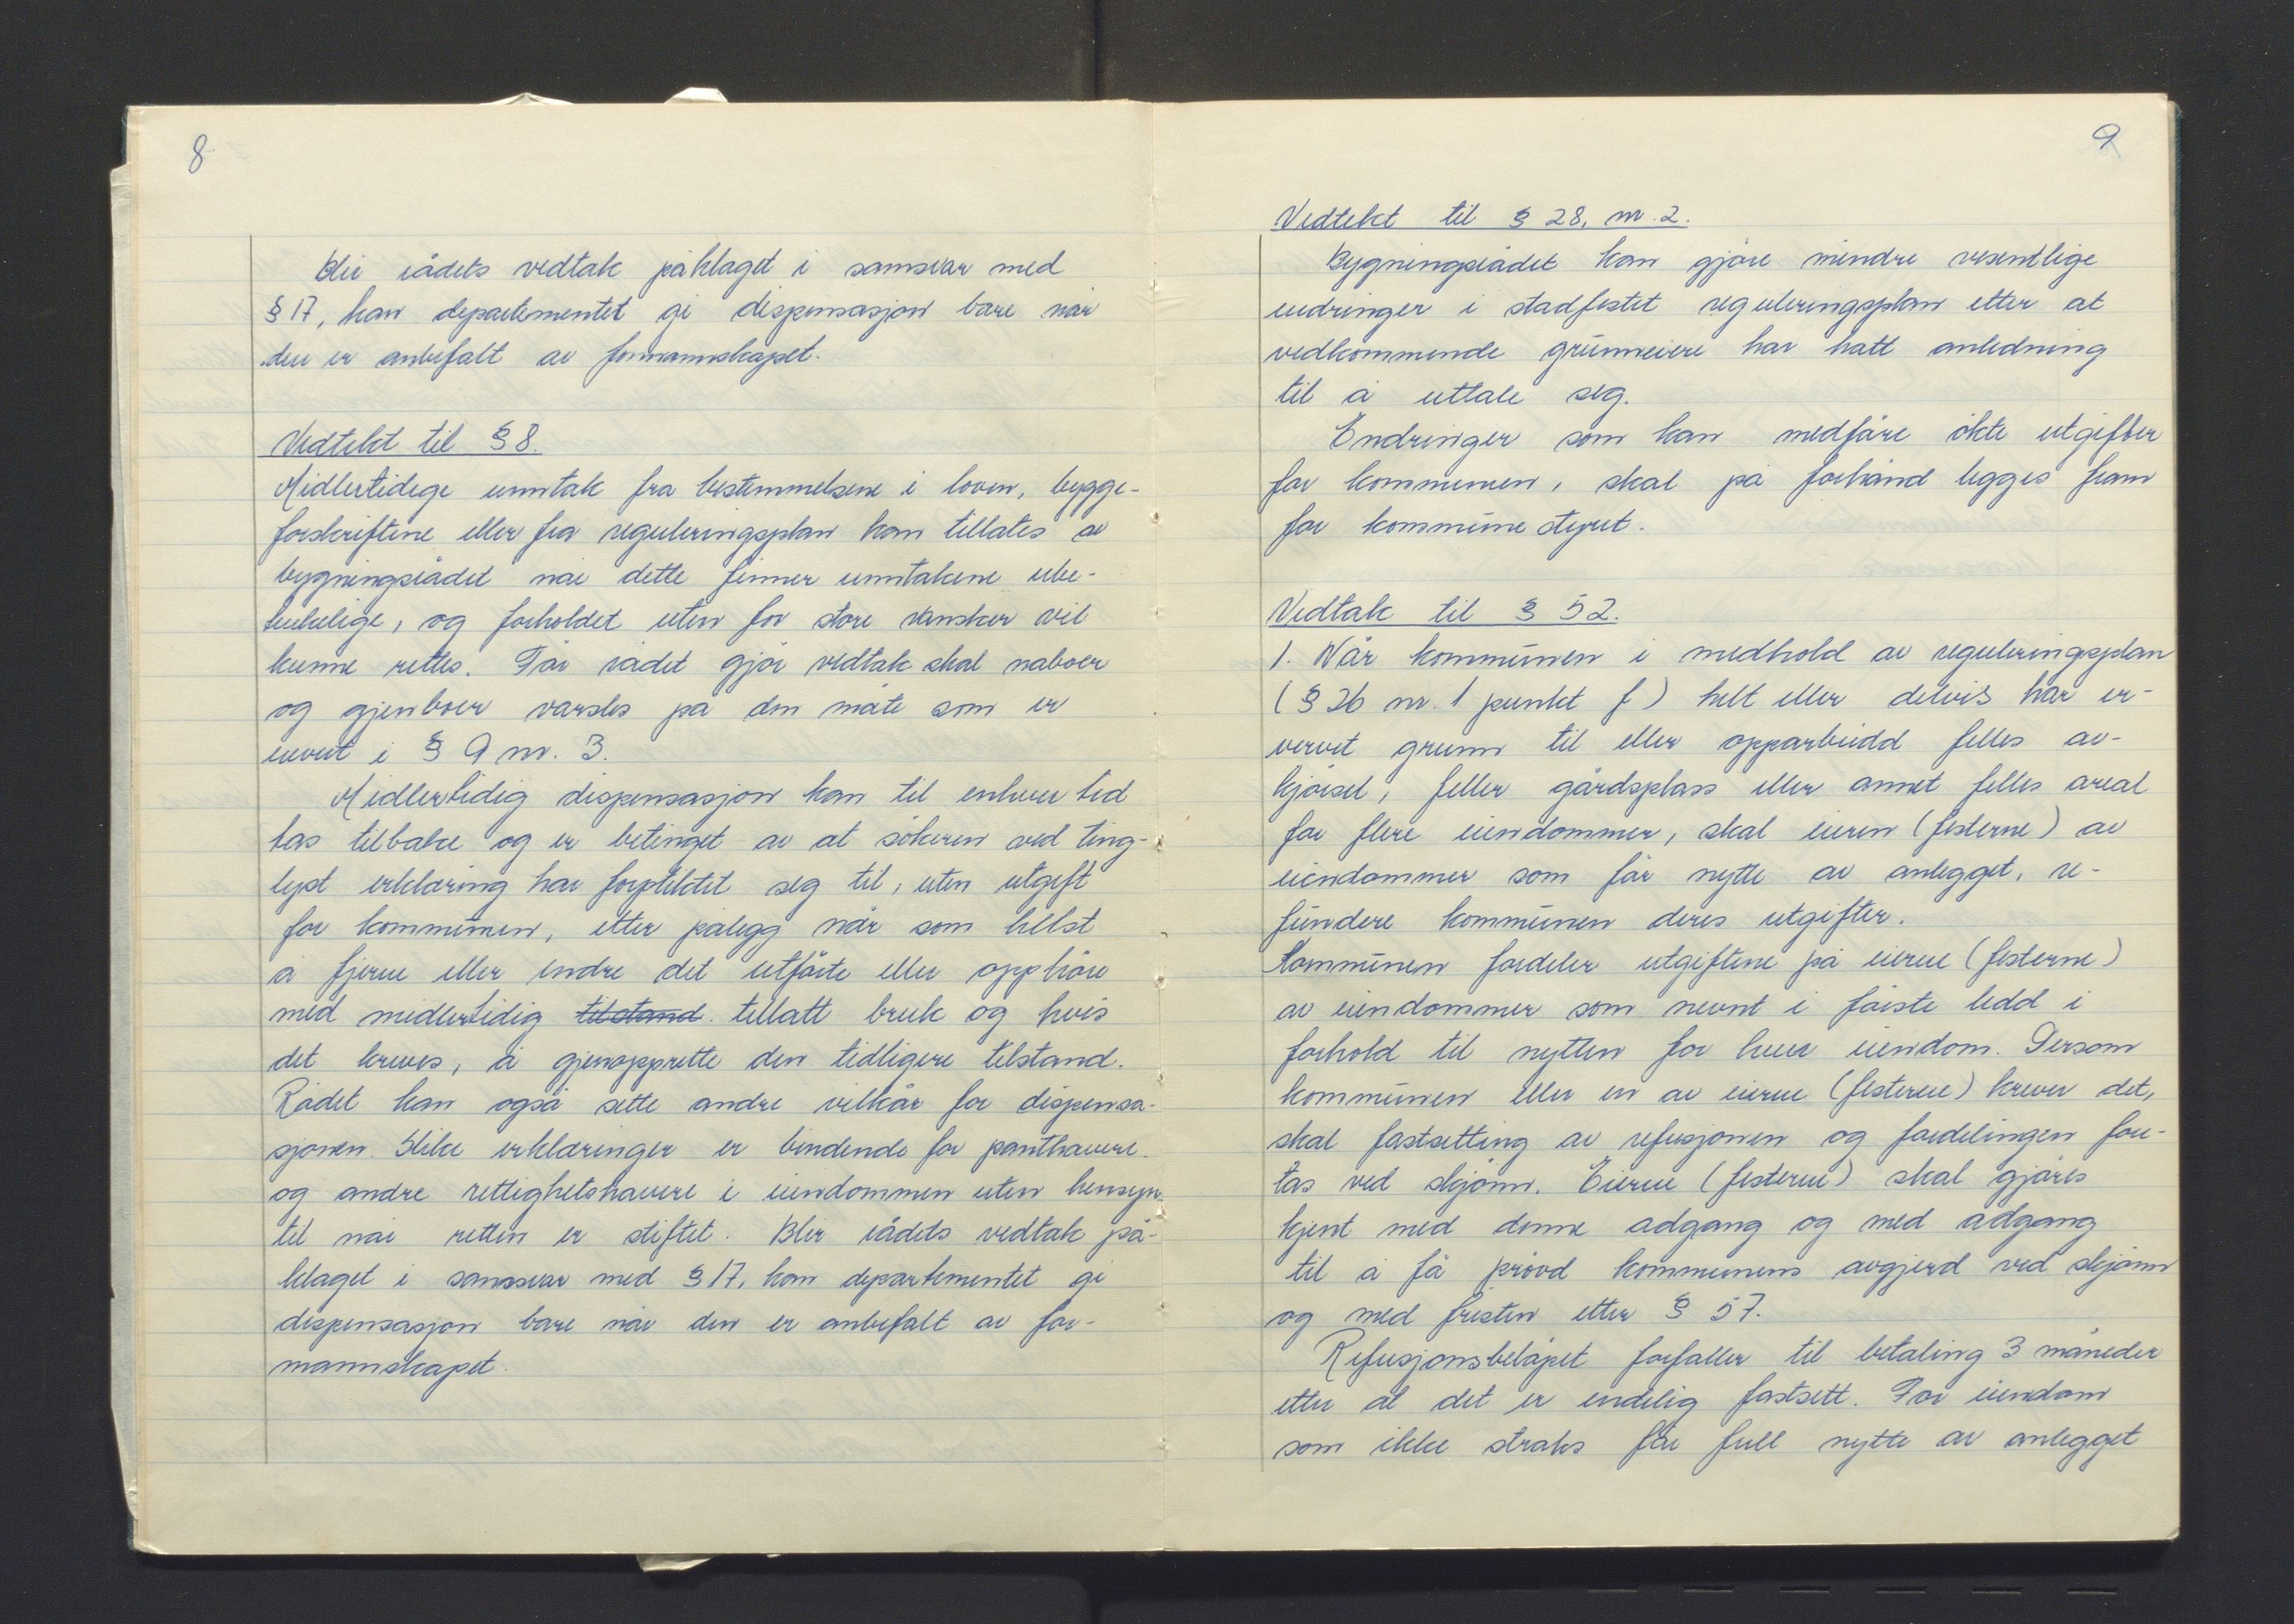 8
Blir rådets vedtak påklaget i samsvar med
§ 17, kan departementet gi dispensasjon bare når
den er anbefalt av formannskapet.
Vedtekt til § 8.
Midlertidige unntak fra bestemmelsene i loven, bygge-
forskriftene eller fra reguleringsplan kan tillates av
bygningsrådet når dette finner unntakene ube-
tenkelige, og forholdet uten for store vansker vil
kunne rettes. Før rådet gjör vedtak skal naboer
og gjenboer varsles på den måte som er
nevnt i § 9 nr. 3.
Midlertidig dispensasjon kan til enhver tid
tas tilbake og er betinget av at sökeren ved ting-
lyst erklæring har forpliktet seg til, uten utgift
for kommunen, etter pålegg når som helst
å fjerne eller endre det utförte eller opphöre
med midlertidig tilstand tillatt bruk og hvis
det kreves, å gjenopprette den tidligere tilstand.
Rådet kan også sette andre vilkår for dispensa-
sjonen. Slike erklæringer er bindende for panthavere
og andre rettighetshavere i eiendommen uten hensyn
til når retten er stiftet. Blir rådets vedtak på-
klaget i samsvar med § 17, kan departementet gi
dispensasjon bare når den er anbefalt av for-
mannskapet.
9
Vedtekt til § 28, nr. 2.
Bygningsrådet kan gjöre mindre vesentlige
endringer i stadfestet reguleringsplan etter at
vedkommende grunneiere har hatt anledning
til å uttale seg.
Endringer som kan medföre ökte utgifter
for kommunen, skal på forhånd legges fram
for kommune styret.
Vedtak til § 52.
1. Når kommunen i medhold av reguleringsplan
( § 26 nr. 1 punkt f ) helt eller delvis har er-
vervet grunn til eller opparbeidd felles av-
kjörsel, feller gårdsplass eller annet felles areal
for flere eiendommer, skal eieren (festerne) av
eiendommer som får nytte av anlegget, re-
fundere kommunen deres utgifter.
Kommunen fordeler utgiftene på eierne (festerne)
av eiendommer som nevnt i förste ledd i
forhold til nytten for hver eiendom. Dersom
kommunen eller en av eierne (festerne) krever det,
skal fastsetting av refusjonen og fordelingen fore-
tas ved skjönn. Eierne (festerne) skal gjöres
kjent med denne adgang og med adgang
til å få prövd kommunens avgjerd ved skjönn
og med fristen etter § 57.
Refusjonsbelöpet forfaller til betaling 3 måneder
etter at det er endelig fastsett. For eiendom
som ikke straks får full nytte av anlegget